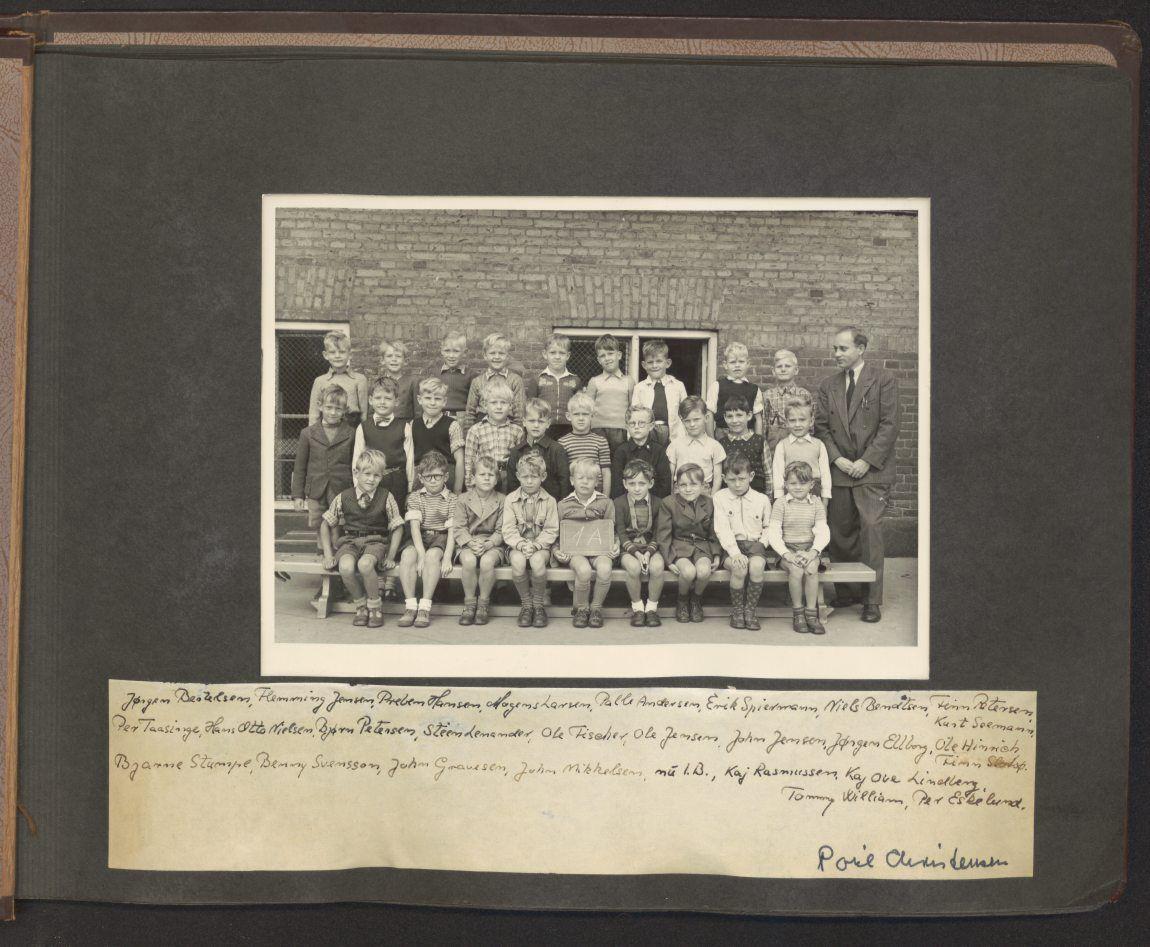 1A
Jørgen Bertelsen, Flemming Jensen, Preben Hansen, Mogens Larsen, Palle Andersen, Erik Spiermann, Niels Bendtsen, Finn Petersen,
Kurt Seemann,
Per Taasinge, Hans Otto Nielsen, Bjørn Petersen, Steen Lenander, Ole Fischer, Ole Jensen, John Jensen, Jørgen Ellborg, Ole Hinrich
Finn
Bjarne Stampe, Benny Svensson, John Gravesen, John Mikkelsen, nü 1.B., Kaj Rasmussen, Kaj Ove Lindberg,
Tommy William, Per Eskelund.
Poul Christensen